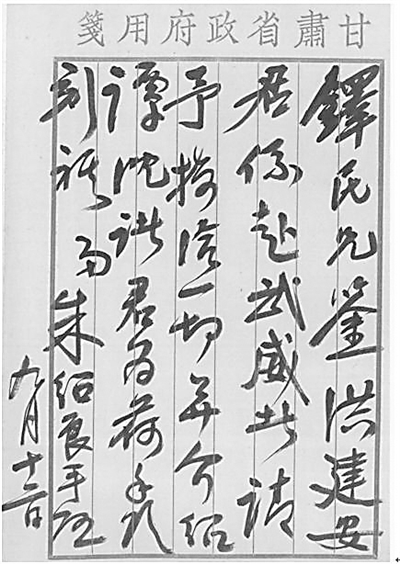 甘肅省政府用箋
鐸民兄鑒洪建安
君係赴武威者請
予接洽一切並介紹
譚沈諸君為荷
祺弟朱紹良手啟
九月十二日